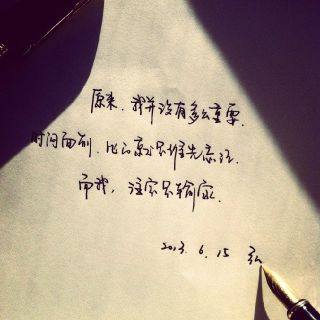 原来，我并没有多么重要，
时间面前，比的就是谁先忘记。
而我，注定是输家。
2013. 6. 15 弘